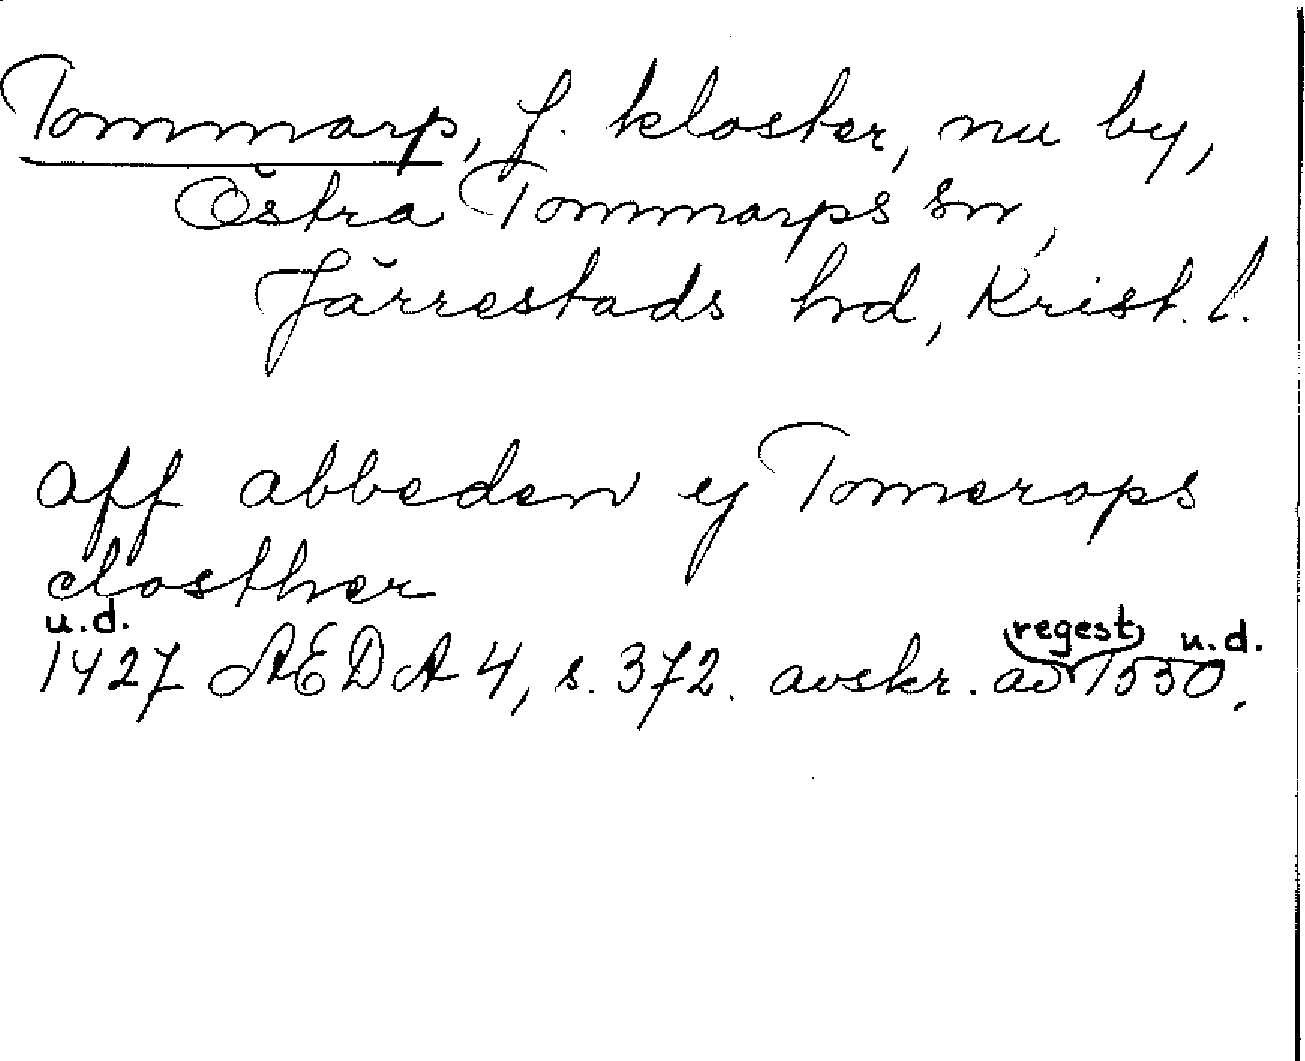 Tommarp, f. kloster, nu by,
Östra Tommarps sn,
Järrestads hrd, Krist. l.
aff abbeden ej Tomerops
closther
u.d.
1427 AEDA 4, s. 372. avskr. av regest 1550 u.d.